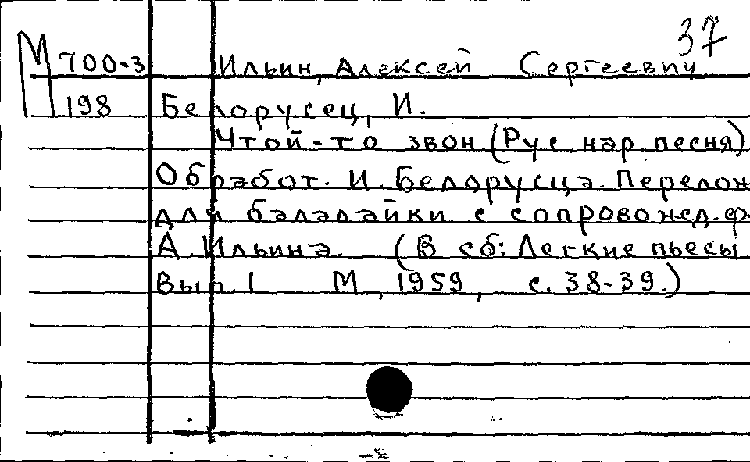 37
М 700-3 Ильин, Алексей Сергеевич
198 Белорусец, И.
Чтой-то звон (Рус нар песня)
Обработ. И. Белорусца. Перелож
для балалайки с сопровожд. ф
А Ильина (В сб: Легкие пьесы
Вып 1 М, 1959, с. 38-39.)